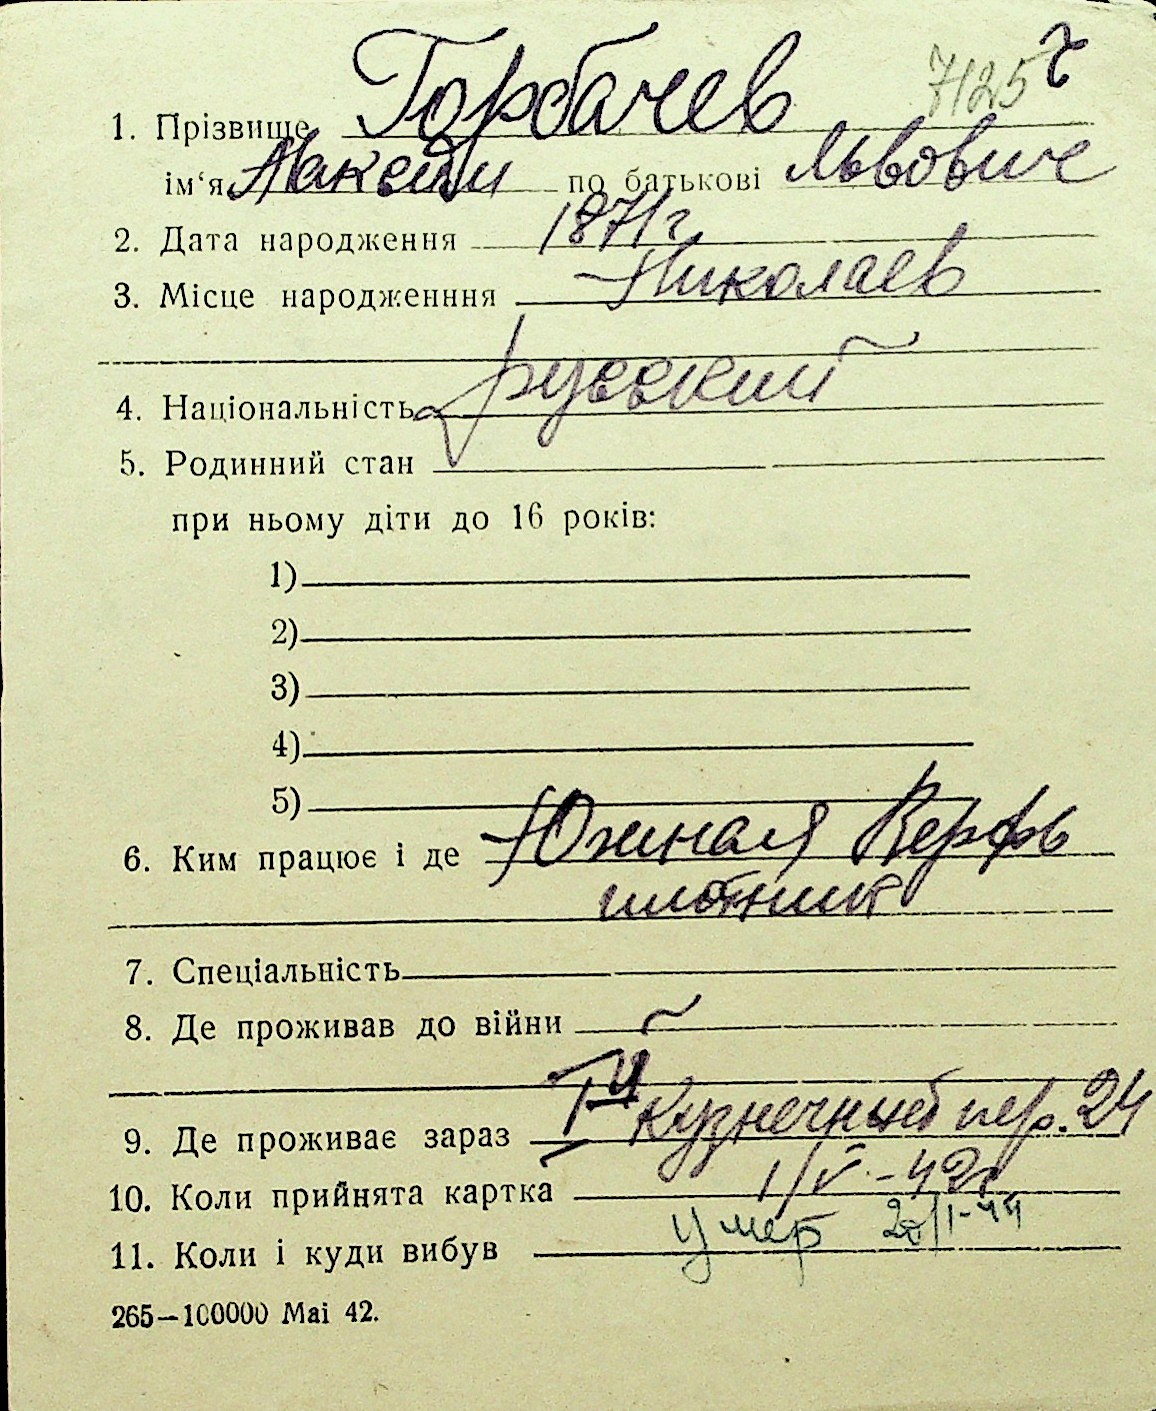 7125 г
1. Прізвище Горбачев
ім‘я Максим по батькові Львович
2. Дата народження 1871 г.
3. Місце народженння Николаев
4. Національність русский
5. Родинний стан
при ньому діти до 16 років:
1)
2)
3)
4)
5)
6. Ким працює і де Южная Верфь
плотник
7. Спеціальність
8. Де проживав до війни ~
9. Де проживає зараз Кузнечный пер. 24
10. Коли прийнята картка 1/V-42г
11. Коли і куди вибув умер /I-44
265—100000 Маі 42.